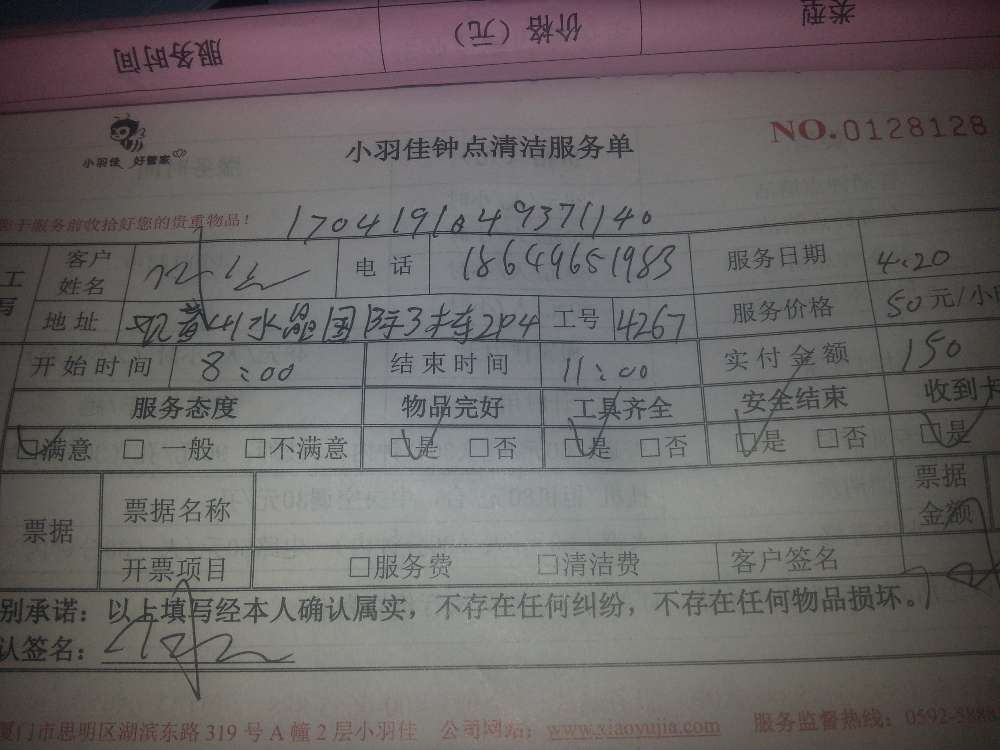 服务时间 价格（元） 类型
小羽佳 好管家
小羽佳钟点清洁服务单
NO.0128128
于服务前收拾好您的贵重物品！
1704191049371140
工 客户姓名 电话 18649651983 服务日期 4.20
写 地址 水晶国 3 204 工号 4267 服务价格 50元/小
开始时间 8:00 结束时间 11:00 实付金额 150
服务态度 物品完好 工具齐全 安全结束 收到卡
☑满意 □一般 □不满意 ☑是 □否 ☑是 □否 ☑是 □否 ☑是
票据 票据名称 票据金额
开票项目 □服务费 □清洁费 客户签名
别承诺：以上填写经本人确认属实，不存在任何纠纷，不存在任何物品损坏。
认签名：
厦门市思明区湖滨东路319号A幢2层小羽佳 公司网站：www.xiaoyujia.com 服务监督热线：0592-5888